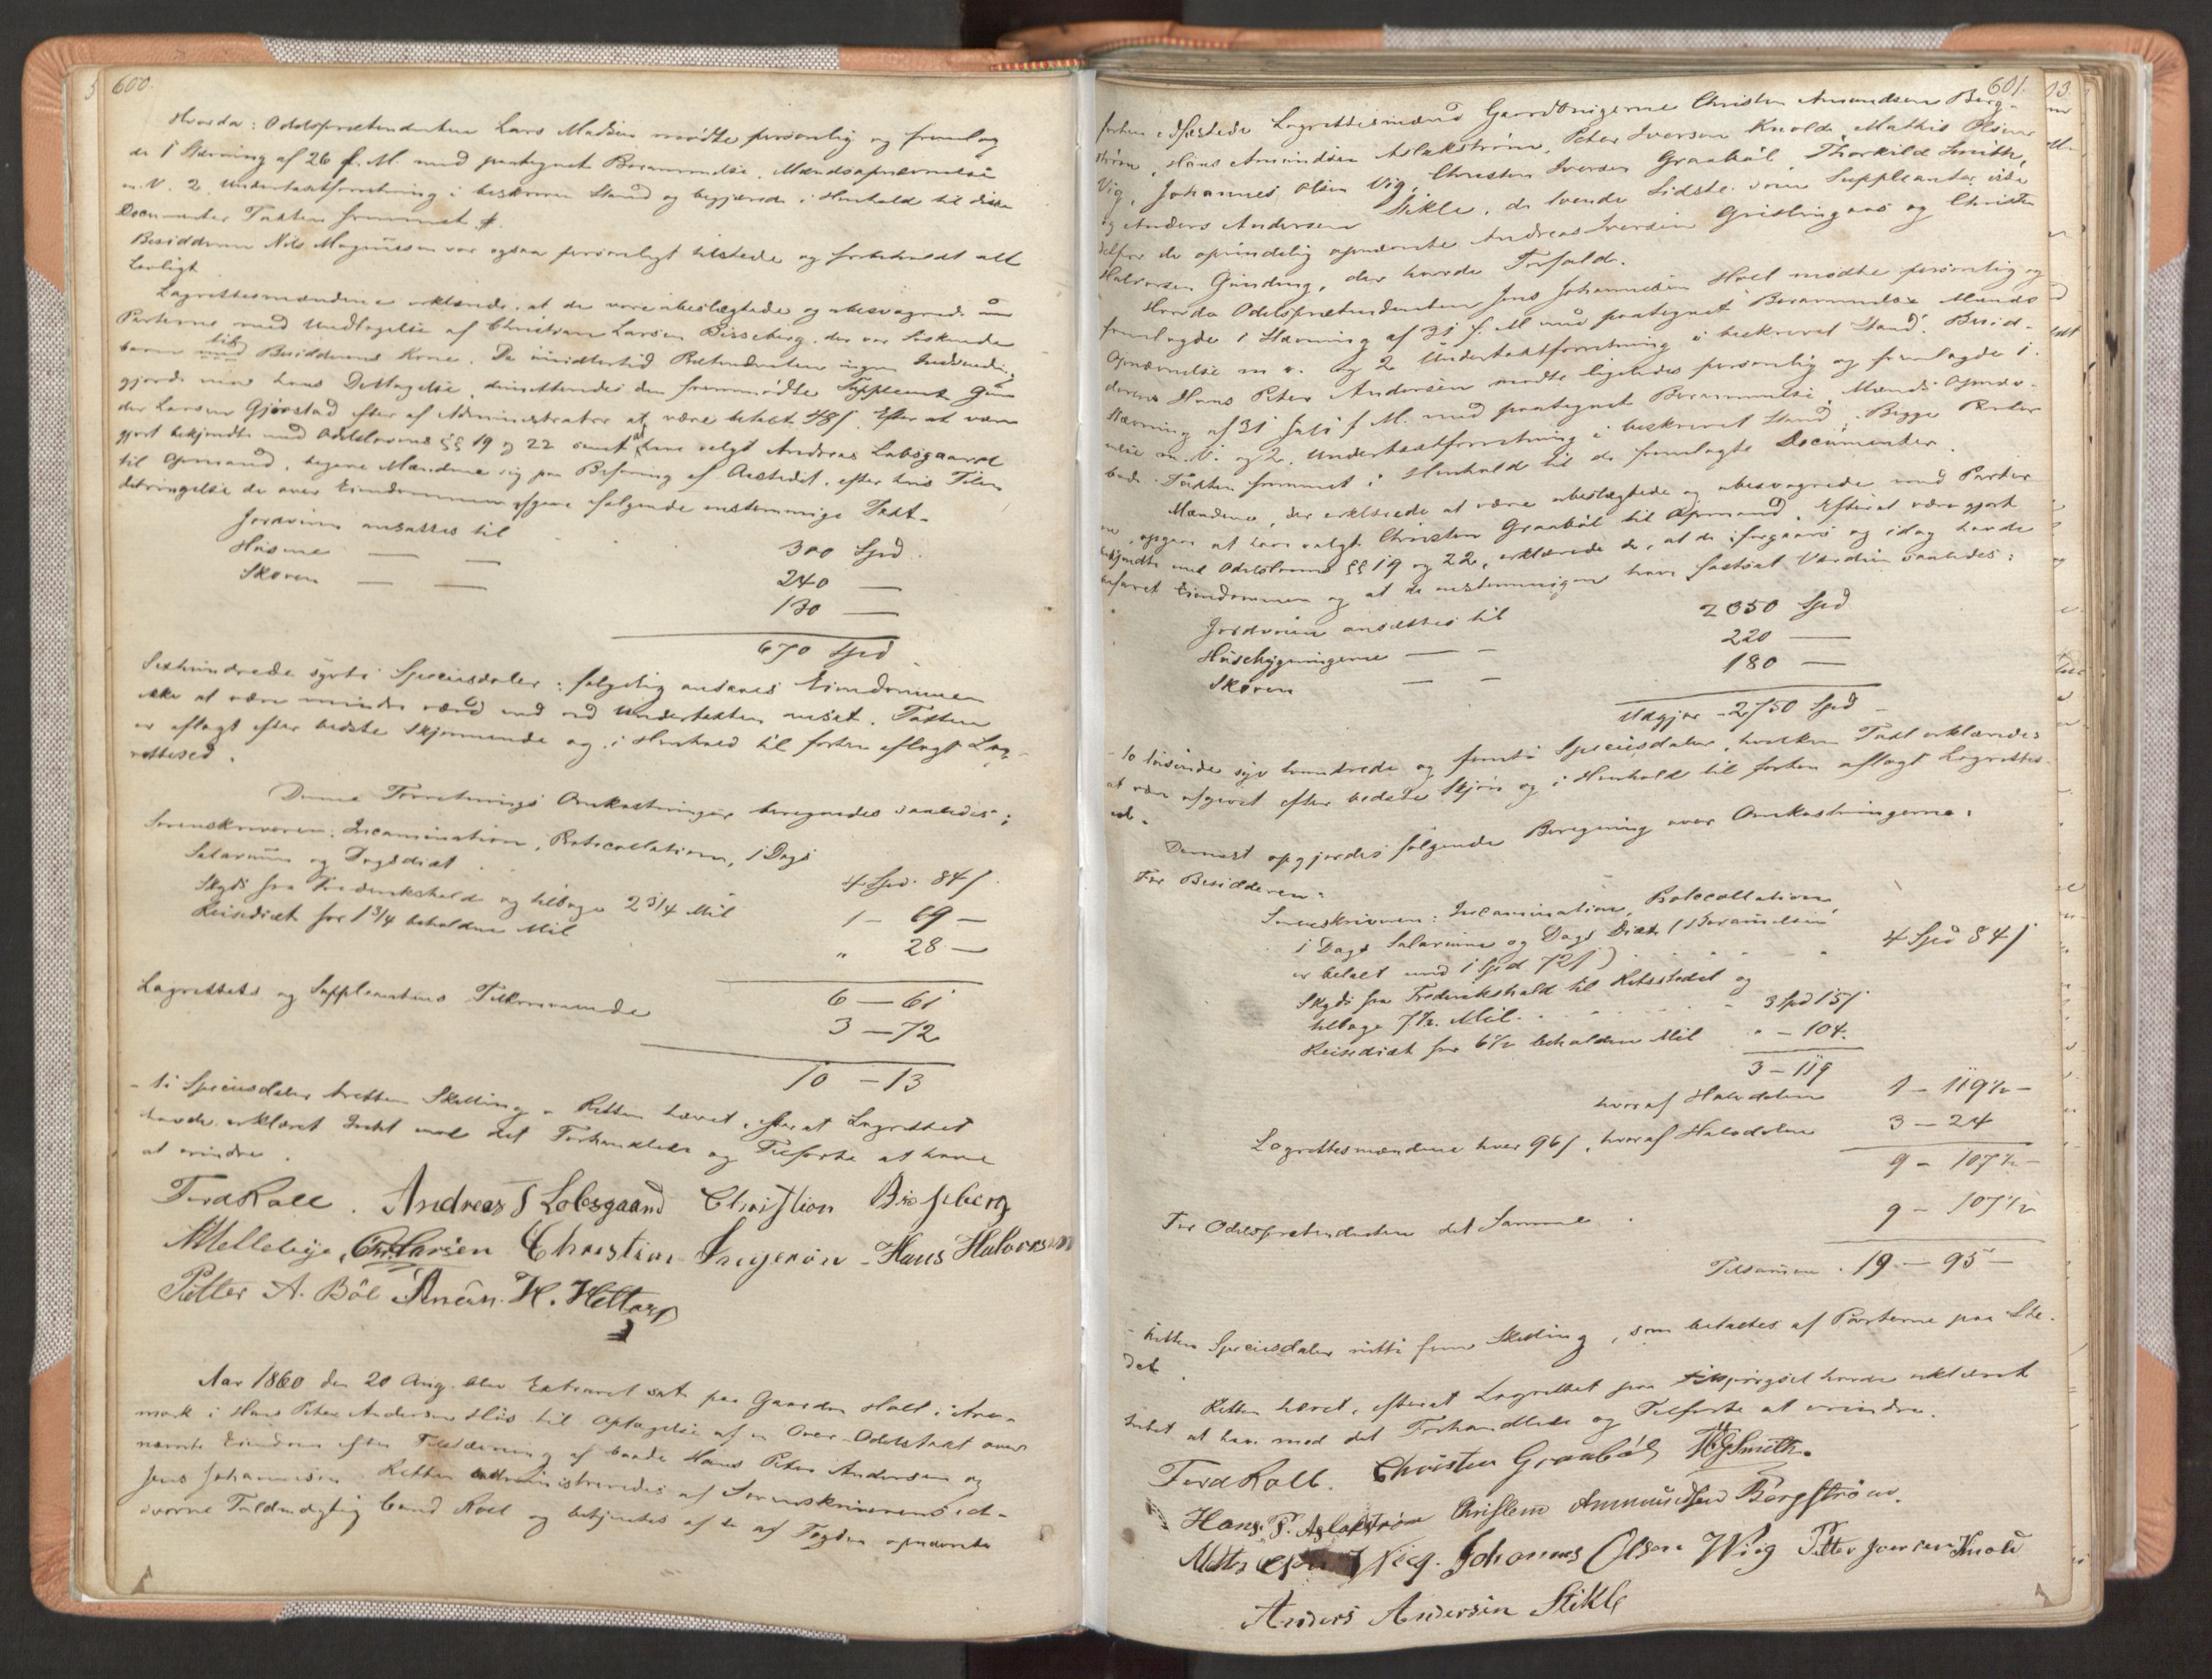 600.
Hvorda: Odelsprætendenten Lars Madsen mødte personlig og fremlag
de 1 Stævning af 26 f. M. med paategnet Berammelse, Mandsopnævnelse
m. V. 2, Undertaxtforretning i beskreven Stand og begjærede i Henhold til disse
Documenter Taxten fremmet.
Besidderen Nils Magnussen var ogsaa personligt tilstede og forbeholdt alt
Lovligt
Lagrettesmændene erklærede, at de vare ubeslægtede og ubesvogrede med
Parterne med Undtagelse af Christian Larsen Bisseberg, der var Søskende
barn til Besidderens Kone. Da imidlertid Prætendenten ingen Indvending
gjorde mod hans Deltagelse, dimitteredes den fremmødte Suppleant Gun
der Larsen Gjørstad efter af Administrator at være betalt 48 s. Efter at være
gjort bekjendte med Odelslovens §§ 19 og 22 samt at have valgt Andreas Labsgaard
til Opmand, begave Mændene sig paa Befaring af Aastedet, efter hvis Tilen
debringelse de over Eiendommen afgave følgende enstemmige Taxt.
Jordveien ansattes til 300 Spd.
Husene — — 240 —
Skoven — — 130 —
670 Spd.
Sexhundrede syvti Speciesdaler; følgelig ansaaes Eiendommen
ikke at være mindre værd end ved Undertaxten anset. Taxten
er aflagt efter bedste Skjønnende og i Henhold til forhen aflagt Lag-
retteseed.
Denne Forretnings Omkostninger beregnedes saaledes:
Sorenskriveren: Incamination, Protocollation, 1 Dags
Salarium og Dagsdiæt 4 Spd. 84 s.
Skyds fra Frederikshald og tilbage 2 3/4 Mil 1 - 69 —
Reisediæt for 1 3/4 beholdne Mil " 28 —
6 — 61
Lagrettets og Suppleantens Tilkommende 3 — 72
10 — 13
- ti Speciesdaler tretten Skilling. Retten hævet, efterat Lagrettet
havde erklæret Intet mod det Forhandlede og Tilførte at have
at erindre.
Ferd Roll. Andreas J Lobsgaard Christian Bisseberg
A Mellebye, Chr. Larsen Christian Ingerøn - Hans Halvorsen
Petter A. Böe H. Hettorp
Aar 1860 den 20 Aug. blev Extraret sat paa Gaarden Holt i Are-
mark i Hans Peter Andersens Hus til Optagelse af en Over-Odelstaxt over
nævnte Eiendom efter Tilstævning af baade Hans Peter Andersen og
Jens Johannesen. Retten administreredes af Sorenskriverens ed-
svorne Fuldmægtig Cand Roll og betjentes af de af Fogden opnævnte
601.
forhen edfæstede Lagrettesmænd Gaardbrugerne Christen Amundsen Berg-
strøm, Hans Amundsen Aslakstrøm, Peter Iversen Knold, Mathis Olsen
Vig, Johannes Olsen Vig, Christen Iversen Graabøl, Thorkild Smith,
og Anders Andersen Stikle, de tvende Sidste som Suppleanter
istedetfor de oprindelig opnævnte Andreas Iversen Grislingaas og Christen
Halvorsen Gunding, der havde Forfald.
Hvorda Odelsprætendenten Jens Johannesen Holt mødte personlig og
fremlagde 1 Stævning af 31 f. M. med paategnet Berammelse Mands
Opnævnelse m. v. og 2 Undertaxtforretning i beskrevet Stand. Besid-
deren Hans Peter Andersen mødte ligeledes personlig og fremlagde 1.
Stævning af 31 Juli f M. med paategnet Berammelse, Mands Opnæv-
nelse m. V. og 2, Undertaxtforretning i beskreven Stand. Begge Parter
bade Taxten fremmet i Henhold til de fremlagte Documenter.
Mændene, der erklærede at være ubeslægtede og ubesvogrede med Parter
ne, opgave at have valgt Christen Graabøl til Opmand. Efterat være gjort
bekjendte med Odelslovens §§ 19 og 22, erklærede de, at de iforgaars og idag havde
befaret Eiendommen og at de enstemmigen have fastsat Værdien saaledes:
Jordveien ansættes til 2350 Spd
Husebygningerne — — 220 —
Skoven — — 180 —
Udgjør - 2750 Spd
- to tusinde syv hundrede og femti Speciesdaler, hvilken Taxt erklæredes
at være afgivet efter bedste Skjøn og i Henhold til forhen aflagt Lagrettes-
ed.
Dernæst opgjordes følgende Beregning over Omkostningerne:
For Besidderen:
Sorenskriveren: Incamination, Protocollation,
1 Dags Salarium og Dags Diæt (Berammelsen
er betalt med 1 Spd 72 s) 4 Spd 84 s
Skyds fra Frederikshald til Retsstedet og
tilbage 7 1/2 Mil 3 Spd 15 s
Reisediæt for 6 1/2 beholdne Mil " — 104.
3 — 119
hvoraf Halvdelen 1 - 119 1/2 -
Lagrettesmændene hver 96 s, hvoraf Halvdelen 3 — 24
9 — 107 1/2 -
For Odelsprætendenten det Samme 9 — 107 1/2
Tilsammen 19 — 95 —
- nitten Speciesdaler nitti fem Skilling, som betaltes af Parterne paa Ste-
det.
Retten hævet, efterat Lagrettet paa Tilspørgsel havde erklæret
Intet at have mod det Forhandlede og Tilførte at erindre.
Ferd Roll. Christen Graabøl Smith.
Hans Aslakstrøm Christen Ammundsen Bergstrøm.
Wieg. Johannes Olsen Wiig Petter Iversen Knold
Anders Andersen Stikle